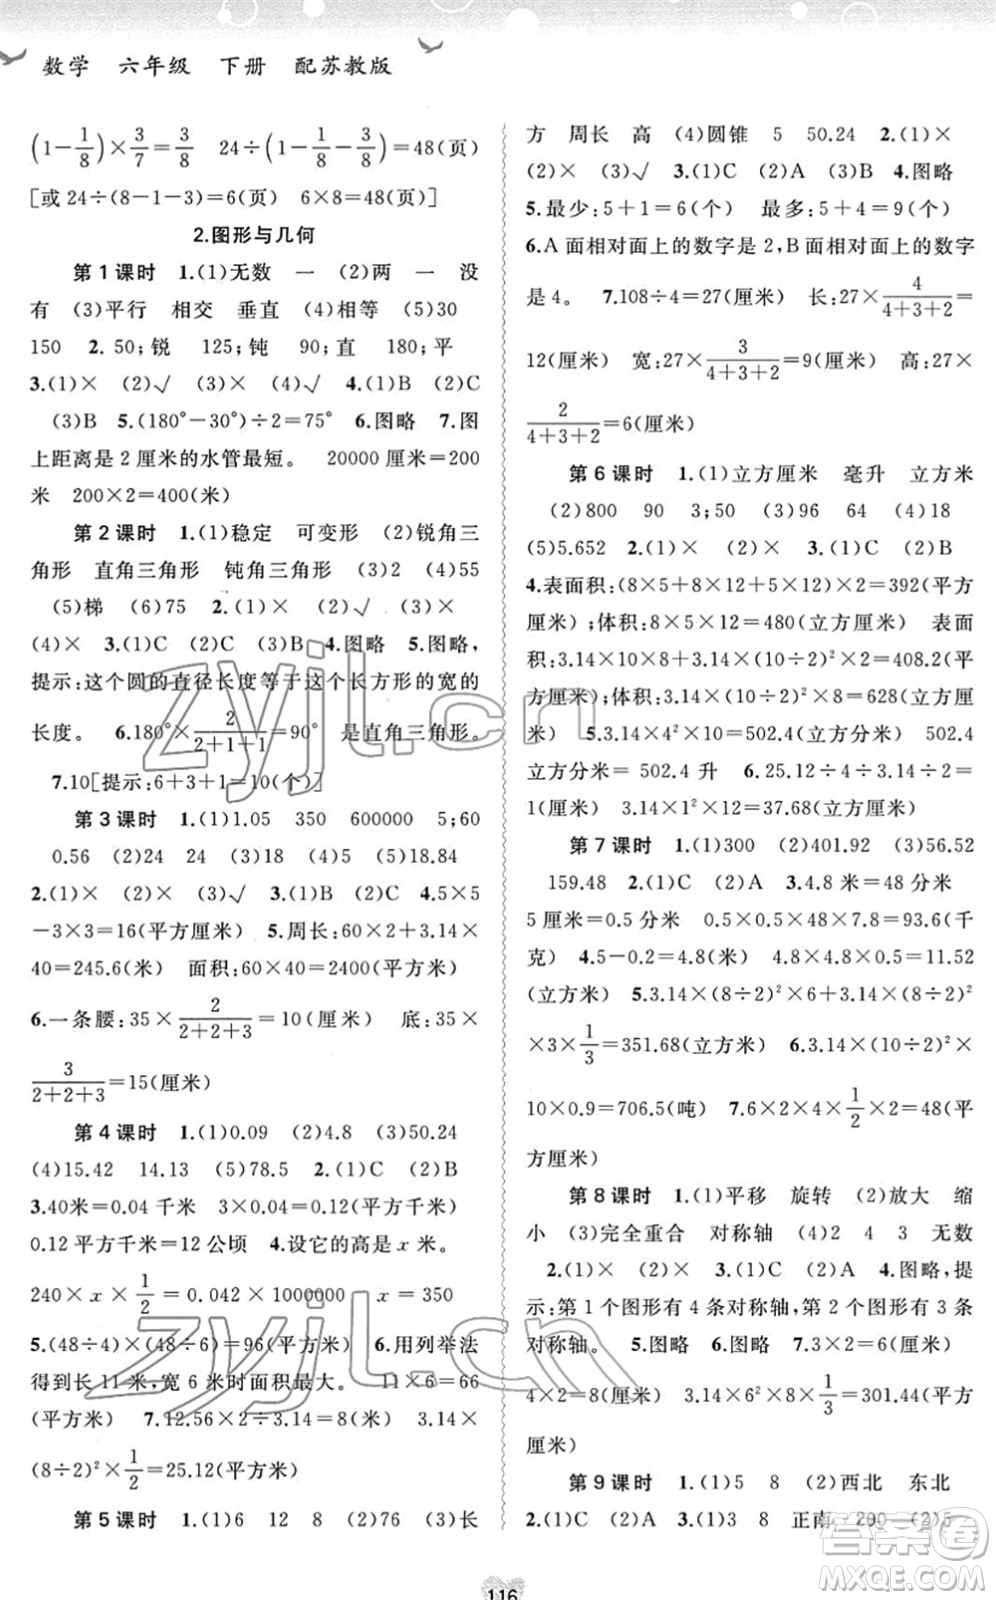 数学 六年级 下册 配苏教版
(1-1/8)×3/7=3/8 24÷(1-1/8-3/8)=48(页)
[或24÷(8-1-3)=6(页) 6×8=48(页)]
2.图形与几何
第1课时 1.(1)无数 一 (2)两 一 没
有 (3)平行 相交 垂直 (4)相等 (5)30
150 2. 50;锐 125;钝 90;直 180;平
3.(1)× (2)√ (3)× (4)√ 4.(1)B (2)C
(3)B 5.(180°-30°)÷2=75° 6.图略 7.图
上距离是2厘米的水管最短。 20000厘米=200
米 200×2=400(米)
第2课时 1.(1)稳定 可变形 (2)锐角三
角形 直角三角形 钝角三角形 (3)2 (4)55
(5)梯 (6)75 2.(1)× (2)√ (3)×
(4)× 3.(1)C (2)C (3)B 4.图略 5.图略,
提示:这个圆的直径长度等于这个长方形的宽的
长度。 6.180°×2/(2+1+1)=90° 是直角三角形。
7.10[提示:6+3+1=10(个)]
第3课时 1.(1)1.05 350 600000 5;60
0.56 (2)24 24 (3)18 (4)5 (5)18.84
2.(1)× (2)× (3)√ 3.(1)B (2)C 4.5×5
-3×3=16(平方厘米) 5.周长:60×2+3.14×
40=245.6(米) 面积:60×40=2400(平方米)
6.一条腰:35×2/(2+2+3)=10(厘米) 底:35×
3/(2+2+3)=15(厘米)
第4课时 1.(1)0.09 (2)4.8 (3)50.24
(4)15.42 14.13 (5)78.5 2.(1)C (2)B
3.40米=0.04千米 3×0.04=0.12(平方千米)
0.12平方千米=12公顷 4.设它的高是x米。
240×x×1/2=0.042×1000000 x=350
5.(48÷4)×(48÷6)=96(平方米) 6.用列举法
得到长11米,宽6米时面积最大。 11×6=66
(平方米) 7.12.56×2÷3.14=8(米) 3.14×
(8÷2)²×1/2=25.12(平方米)
第5课时 1.(1)6 12 8 (2)76 (3)长
方 周长 高 (4)圆锥 5 50.24 2.(1)×
(2)× (3)√ 3.(1)C (2)A (3)B 4.图略
5.最少:5+1=6(个) 最多:5+4=9(个)
6.A面相对面上的数字是2,B面相对面上的数字
是4。 7.108÷4=27(厘米) 长:27×4/(4+3+2)=
12(厘米) 宽:27×3/(4+3+2)=9(厘米) 高:27×
2/(4+3+2)=6(厘米)
第6课时 1.(1)立方厘米 毫升 立方米
(2)800 90 3;50 (3)96 64 (4)18
(5)5.652 2.(1)× (2)× 3.(1)C (2)B
4.表面积:(8×5+8×12+5×12)×2=392(平方
厘米);体积:8×5×12=480(立方厘米) 表面
积:3.14×10×8+3.14×(10÷2)²×2=408.2(平
方厘米);体积:3.14×(10÷2)²×8=628(立方厘
米) 5.3.14×4²×10=502.4(立方分米) 502.4
立方分米=502.4升 6.25.12÷4÷3.14÷2=
1(厘米) 3.14×1²×12=37.68(立方厘米)
第7课时 1.(1)300 (2)401.92 (3)56.52
159.48 2.(1)C (2)A 3.4.8米=48分米
5厘米=0.5分米 0.5×0.5×48×7.8=93.6(千
克) 4.5-0.2=4.8(米) 4.8×4.8×0.5=11.52
(立方米) 5.3.14×(8÷2)²×6+3.14×(8÷2)²
×3×1/3=351.68(立方米) 6.3.14×(10÷2)²×
10×0.9=706.5(吨) 7.6×2×4×1/2×2=48(平
方厘米)
第8课时 1.(1)平移 旋转 (2)放大 缩
小 (3)完全重合 对称轴 (4)2 4 3 无数
2.(1)× (2)× 3.(1)C (2)A 4.图略,提
示:第1个图形有4条对称轴,第2个图形有3条
对称轴。 5.图略 6.图略 7.3×2=6(厘米)
4×2=8(厘米) 3.14×6²×8×1/3=301.44(平方
厘米)
第9课时 1.(1)5 8 (2)西北 东北
2.(1)C (2)A 3.(1)3 8 正南 200 (2)5
116
zyjl.cn
zyjl.cn
答案圈
MXQE.COM